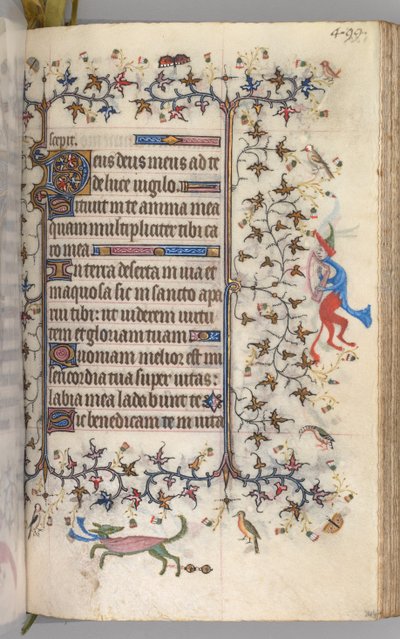 4-99
scepit.
Deus deus meus ad te
de luce uigilo.
Sitiuit in te anima mea
quam multipliciter tibi ca
ro mea
In terra deserta in uia et
in aquosa sic in sancto apa
rui tibi: ut uiderem uirtu
tem et gloriam tuam
Quoniam melior est mi
sericordia tua super uitas:
labia mea laudabunt te
Sic benedicam te in uita